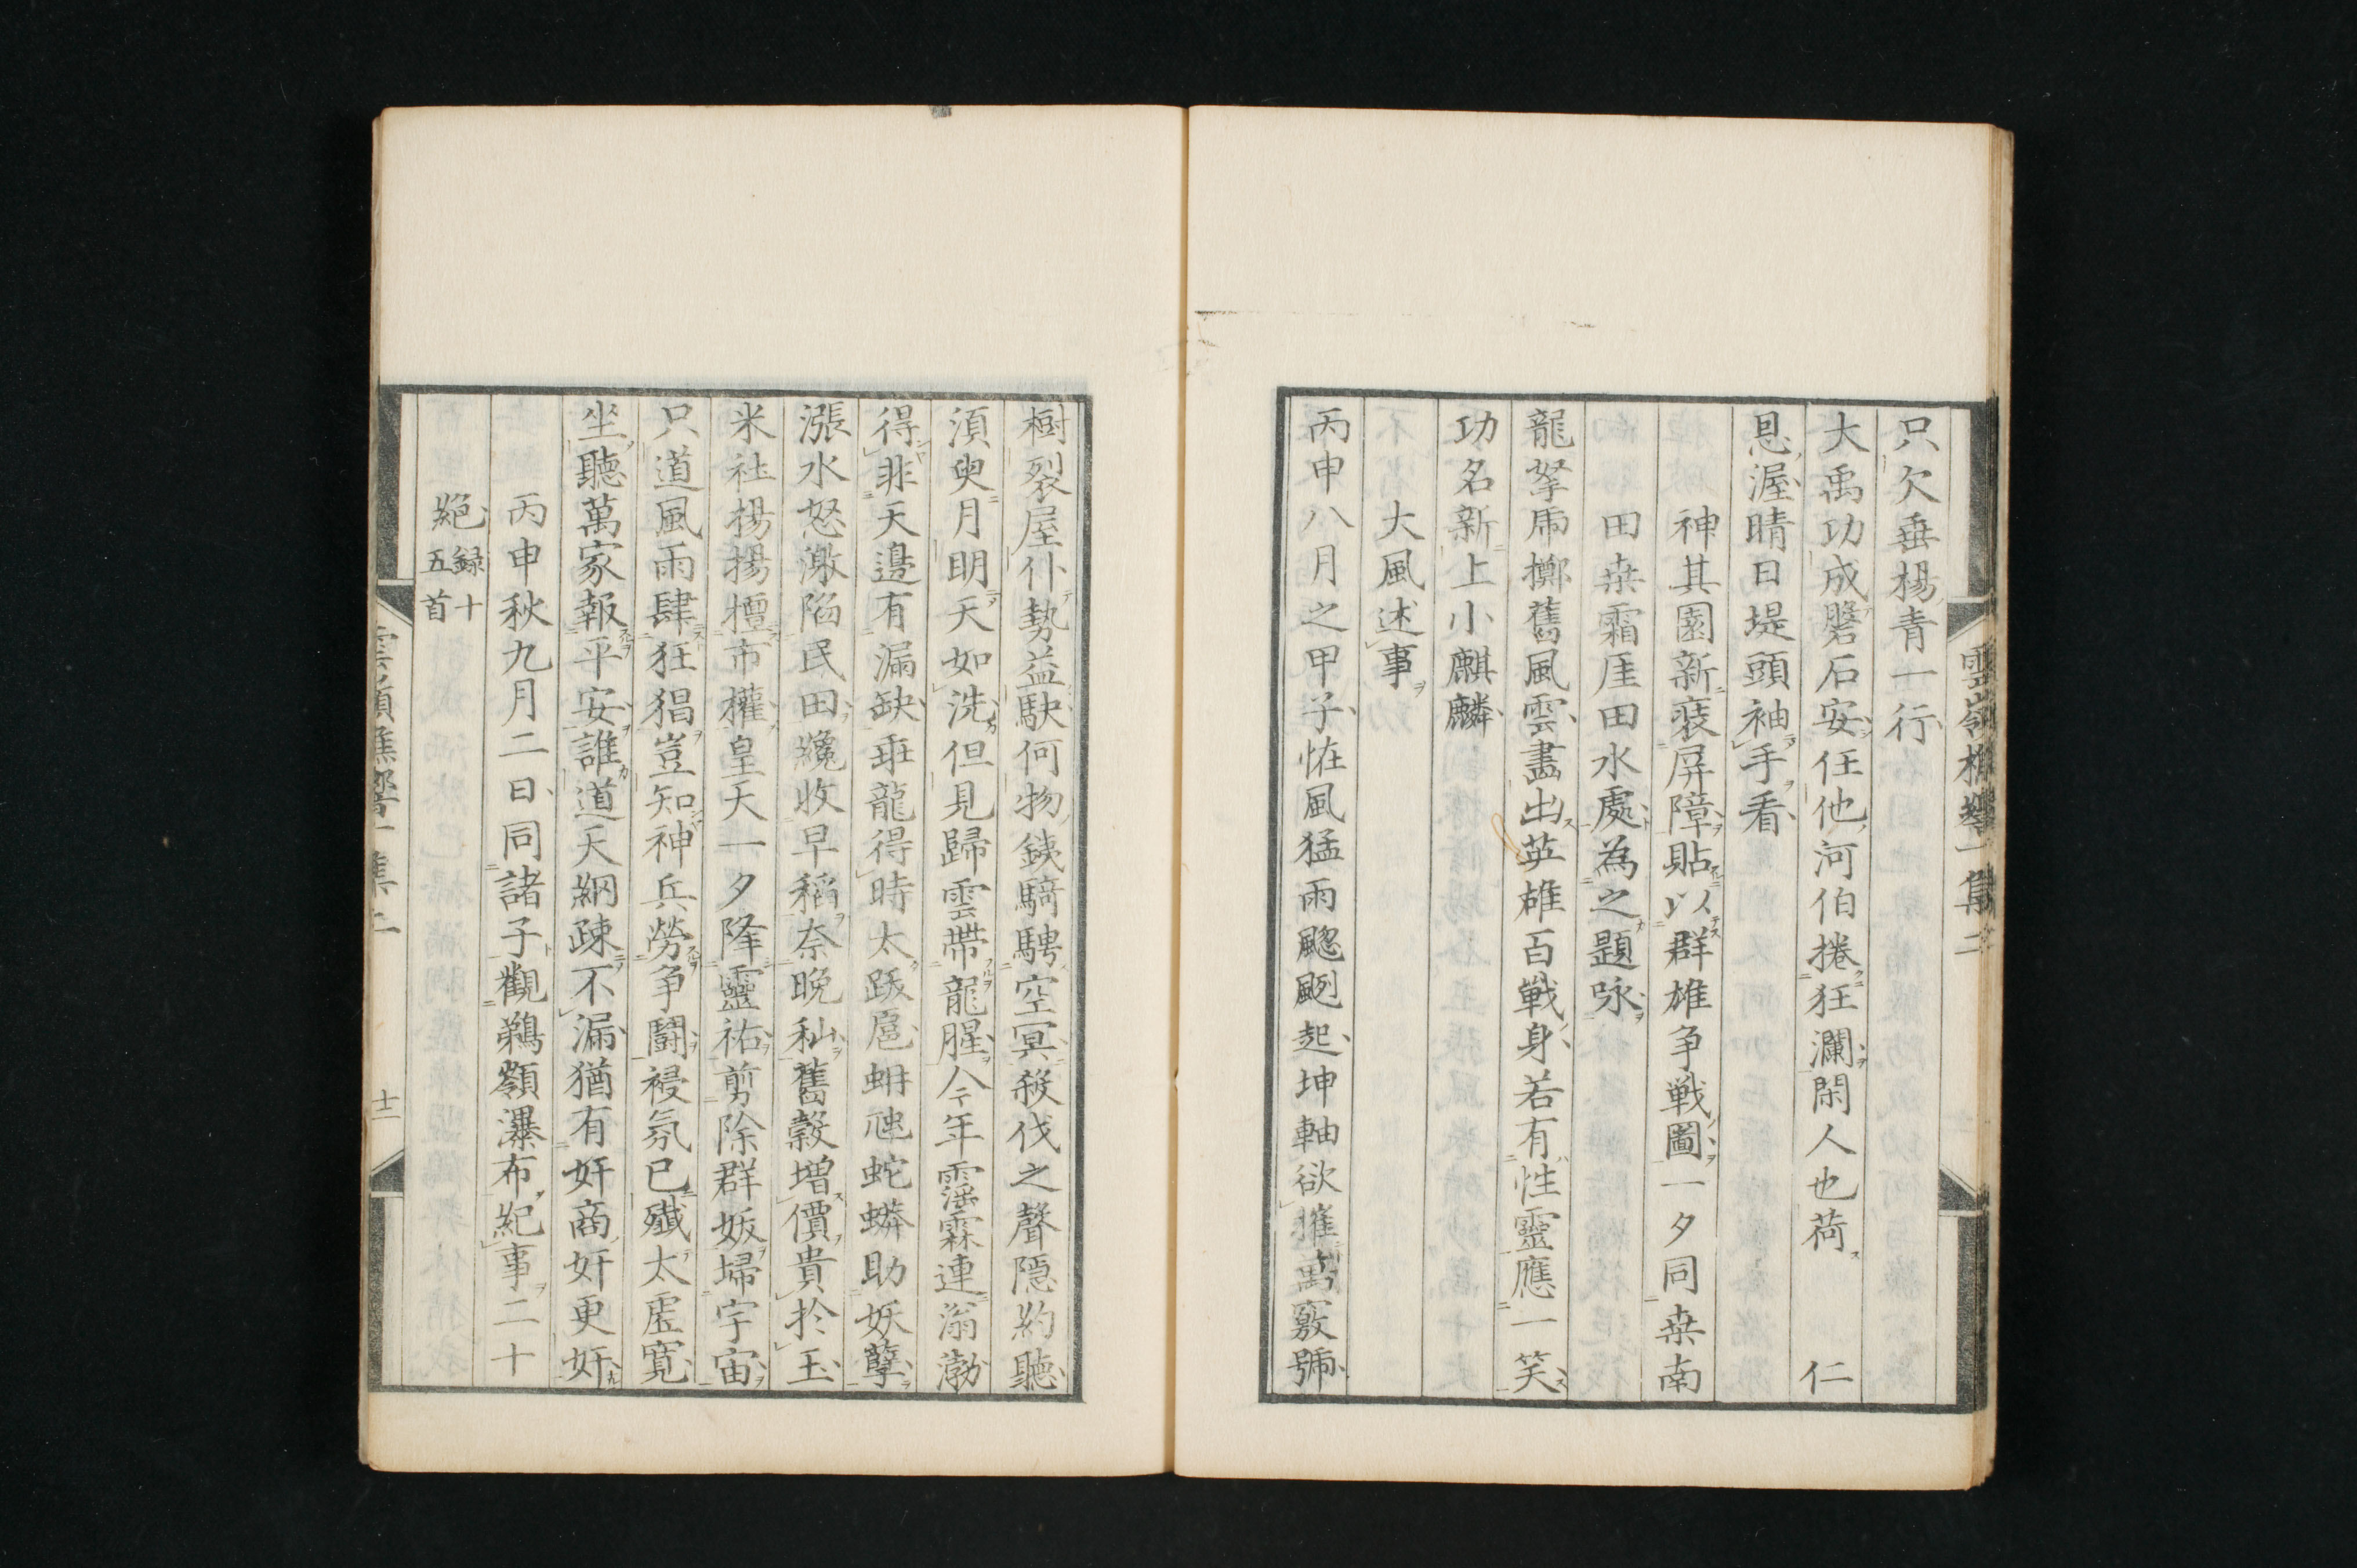 只欠垂楊青一行
大禹功成磐石安任他河伯捲狂瀾閑人也荷 仁
恩渥晴日堤頭袖手看
神其園新裝屏障貼以群雄争戦圖一夕同桒南
田桒霜厓田水處為之題咏
龍拏虎擲舊風雲畵出英雄百戦身若有性靈應一笑
功名新上小麒麟
大風述事
丙申八月之甲子恠風猛雨颼颲起坤軸欲摧萬竅號
樹裂屋仆勢益駚何物銕騎騁空冥殺伐之聲隠約聽
湏臾月明天如洗但見歸雲帶龍腥今年霪霖連滃渤
得非天邉有漏缺乖龍得時太跋扈蚶虺蛇蠎助妖孽
漲水怒激陷民田纔收早稻奈晩秈舊穀増價貴於玉
米社揚揚擅市權皇天一夕降靈祐剪除群妭埽宇宙
只道風雨肆狂猖豈知神兵勞争鬪祲氛已殱太虚寛
坐聽萬家報平安誰道天網踈不漏猶有奸商奸更奸
丙申秋九月二日同諸子觀鵜嶺瀑布紀事二十
絶 録十五首
雲嶺樵響一集二
十二